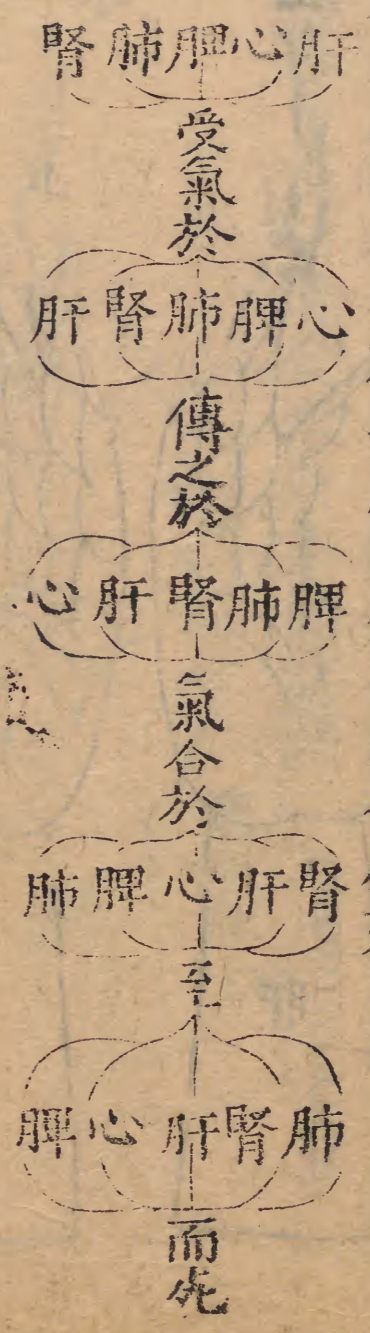 肝心脾肺腎
受氣於
心脾肺腎肝
傳之於
脾肺腎肝心
氣合於
腎肝心脾肺
至
肺腎肝心脾
而死